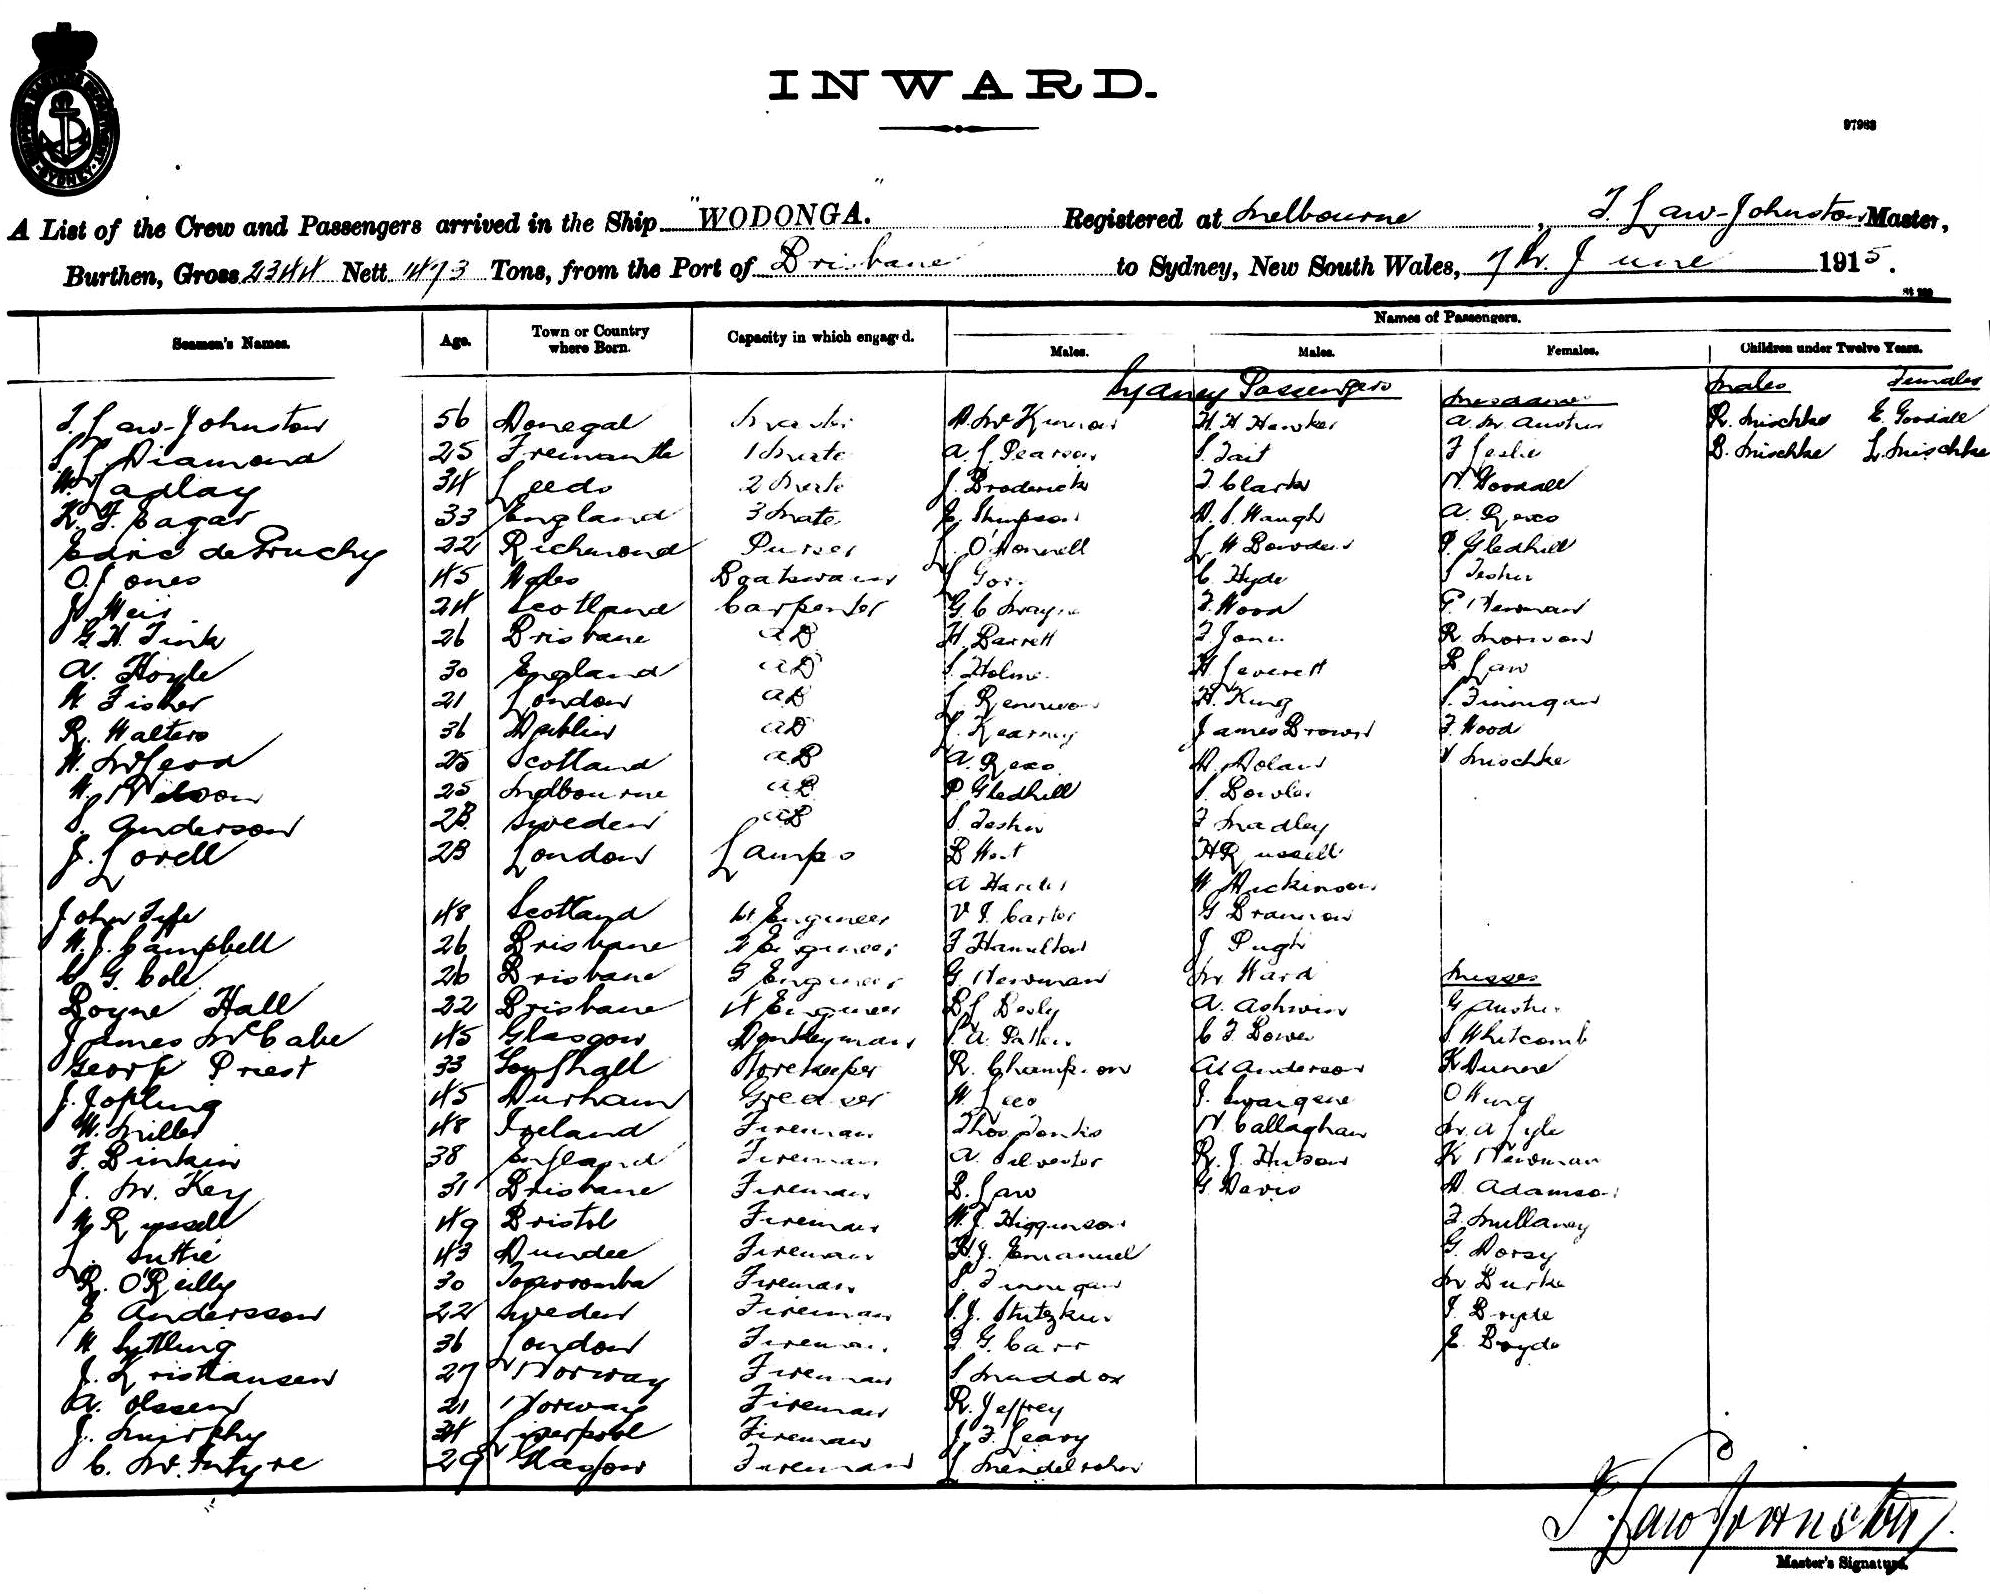 INWARD.
97963
A List of the Crew and Passengers arrived in the Ship "WODONGA." Registered at Melbourne, T. Law-Johnston Master,
Burthen, Gross 2344 Nett 1473 Tons, from the Port of Brisbane to Sydney, New South Wales, 7th June 1915.
Seamen's Names. Age. Town or Country where Born. Capacity in which engaged. Names of Passengers.
Males. Males. Females. Children under Twelve Years.
Sydney Passengers Mesdames Males Females
T. Law-Johnston 56 Donegal Master D. McKinnon H. H. Hawker A. M. Austin R. Mischke E. Goodall
Diamond 25 Fremantle 1 Mate A. J. Pearson S. Tait F Leslie B. Mischke L. Mischke
W. Ladlay 34 Leeds 2 Mate J. Broderick T. Clarke N. Goodall
K. F. Eagar 33 England 3 Mate E. Simpson D. S. Haugh A. Rexo
Edric de Pruchy 22 Richmond Purser J. O'Donnell L W Bowden P. Gledhill
O Jones 45 Wales Boatswain J. C. Hyde
J. Weir 24 Scotland Carpenter G. C. F. Wood G. Newman
G. H. Fink 26 Brisbane AB H. Barrett F. Jones R. Morison
A. Hoyle 30 England AB S. Holme H Leverett B Law
H Fisher 21 London AB J. H. King S. Finnigan
R. Walters 36 Dublin AB J. Kearney James Brown F. Wood
N. McLeod 25 Scotland AB A. Rexo D. Dolan V Mischke
W. Wilson 25 Melbourne AB P. Gledhill S. Bowler
S. Anderson 28 Sweden AB S. F Madley
J. Lovell 28 London Lamps B West H Russell
A W Dickinson
John Fyfe 48 Scotland 1st Engineer V. S. Carter G Brannon
W. J. Campbell 26 Brisbane 2 Engineer F Hamilton J Pugh
C. G. Cole 26 Brisbane 3 Engineer G Newman M Ward Misses
Boyne Hall 22 Brisbane 4 Engineer B J A. Ashwin G Austin
James McCabe 45 Glasgow Donkeyman S. A. C F Bower S. Whitcomb
George Priest 33 Storekeeper R. Champion A Anderson K Dunne
J. Jopling 45 Durham Greaser W. Lees J. O Hurg
W. Miller 48 Ireland Fireman Thos Jenkis N. Callaghan M. A Lyle
F. Binkin 38 England Fireman A. Silvester R. J. Hutson K Newman
J. McKey 31 Brisbane Fireman B. Law G Davis D. Adamson
W Russell 49 Bristol Fireman W. J. Higginson F. Mullaney
L. Suttie 43 Dundee Fireman H. J. Emanuel G. Dorsy
R. O'Reilly 30 Toowoomba Fireman S. Finnigan M Burke
E Andersson 22 Sweden Fireman S. J. J. Bryde
H 36 London Fireman F. G. Carr E. Bryde
J. Kristiansen 27 Norway Fireman S Maddox
A. Olssen 21 Norway Fireman R. Jeffrey
J. Murphy 34 Liverpool Fireman J. F. Leary
C. McIntyre 29 Glasgow Fireman J Mendelsohn
T. Law Johnston
Master's Signature.